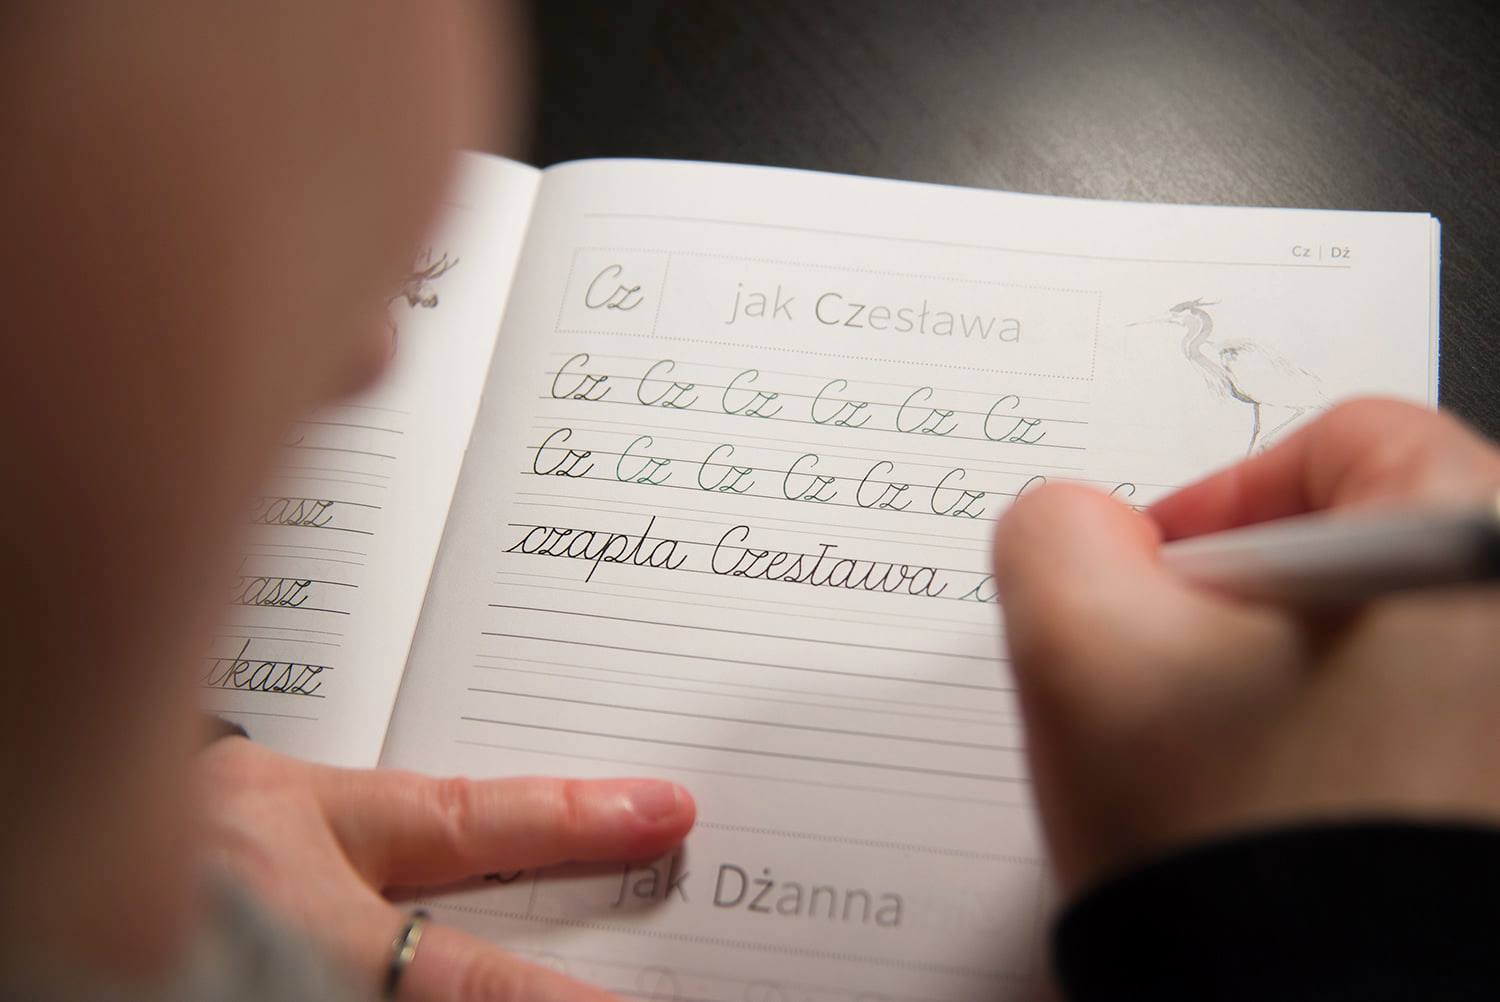 kasz
kasz
ukasz
Cz | Dż
Cz jak Czesława
Cz Cz Cz Cz Cz Cz
Cz Cz Cz Cz Cz Cz
czapla Czesława
jak Dżanna